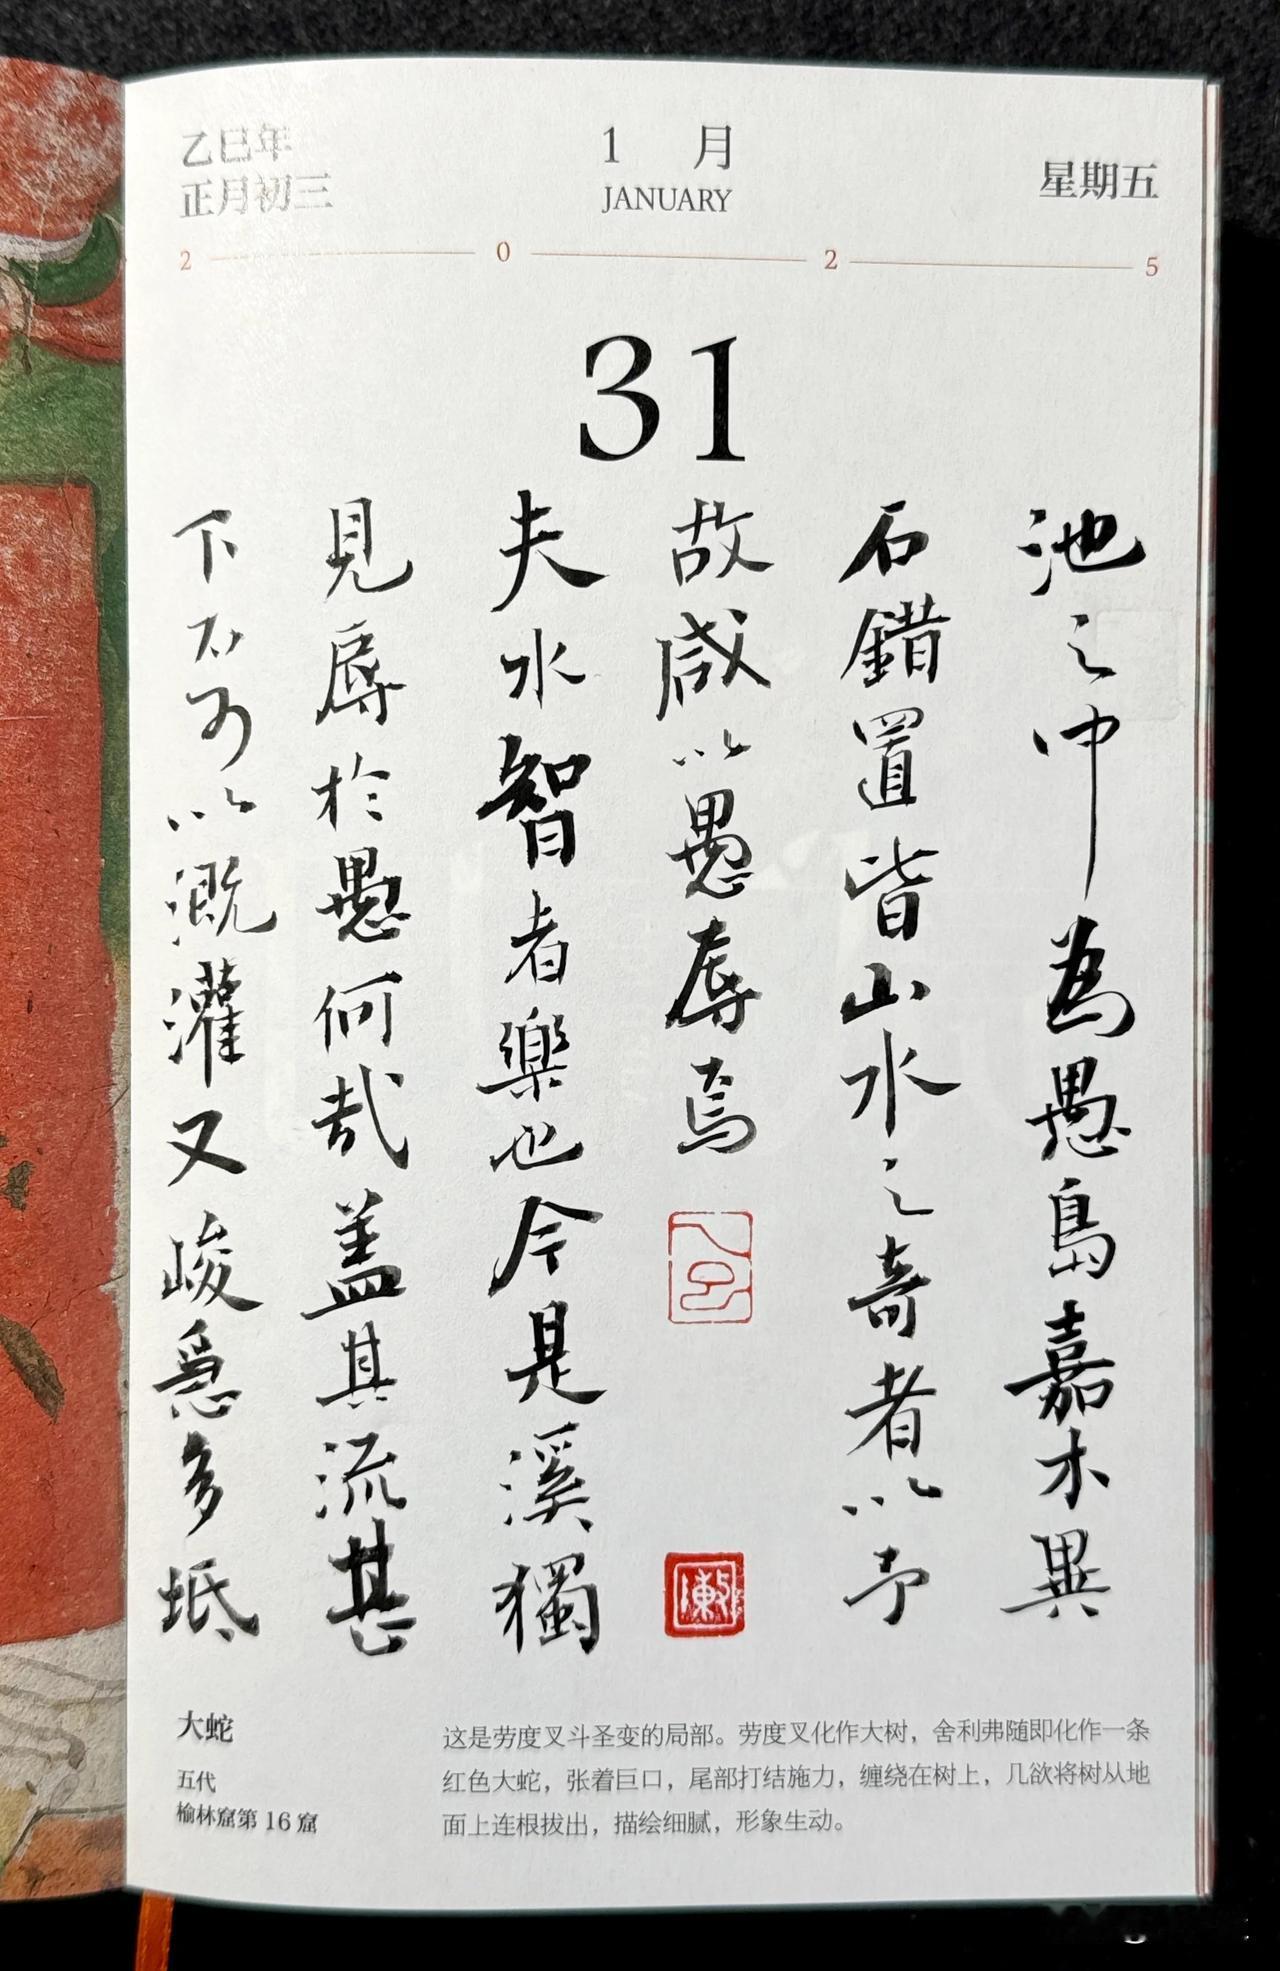 乙巳年
正月初三
1 月
JANUARY
星期五
2 0 2 5
31
池之中為愚島嘉木異
石錯置皆山水之奇者以予
故咸以愚辱焉
夫水智者樂也今是溪獨
見辱於愚何哉蓋其流甚
下不可以溉灌又峻急多坻
大蛇
五代
榆林窟第 16 窟
这是劳度叉斗圣变的局部。劳度叉化作大树，舍利弗随即化作一条
红色大蛇，张着巨口，尾部打结施力，缠绕在树上，几欲将树从地
面上连根拔出，描绘细腻，形象生动。